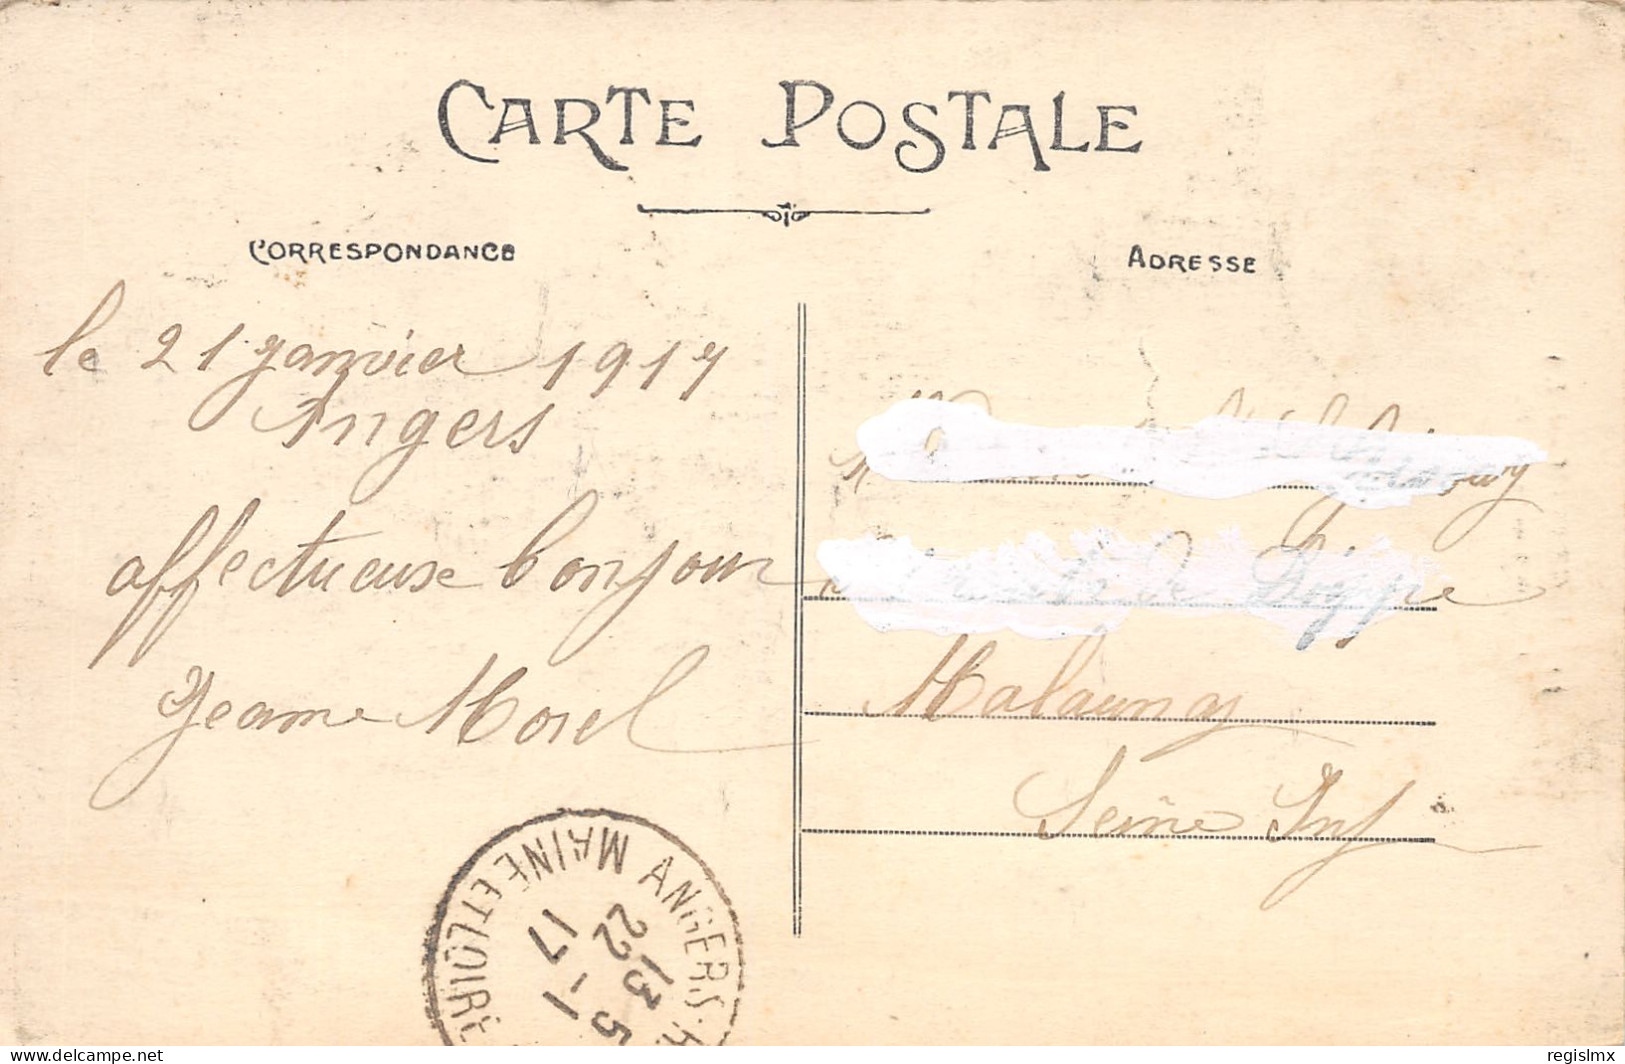 CARTE POSTALE
CORRESPONDANCE
ADRESSE
le 21 janvier 1917
Angers
affectueuse bonjour
Jeanne Morel
de Dieppe
Malaunay
Seine Inf
ANGERS
MAINE ET LOIRE
13 5
22 -1
17
delcampe.net
regislmx